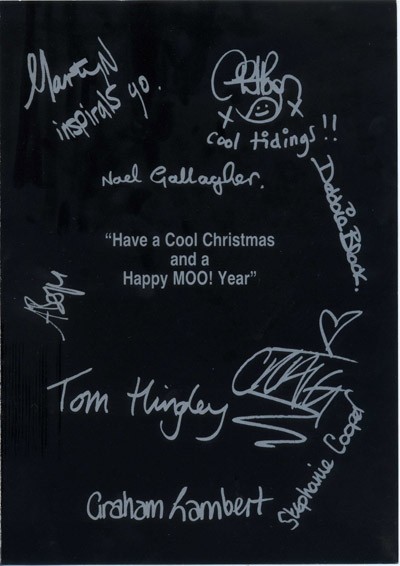 Martyn
inspirals yo.
cool tidings!!
Noel Gallagher.
Debbie Black.
"Have a Cool Christmas
and a
Happy MOO! Year"
Tom Hingley
Stephanie Cooper
Graham Lambert